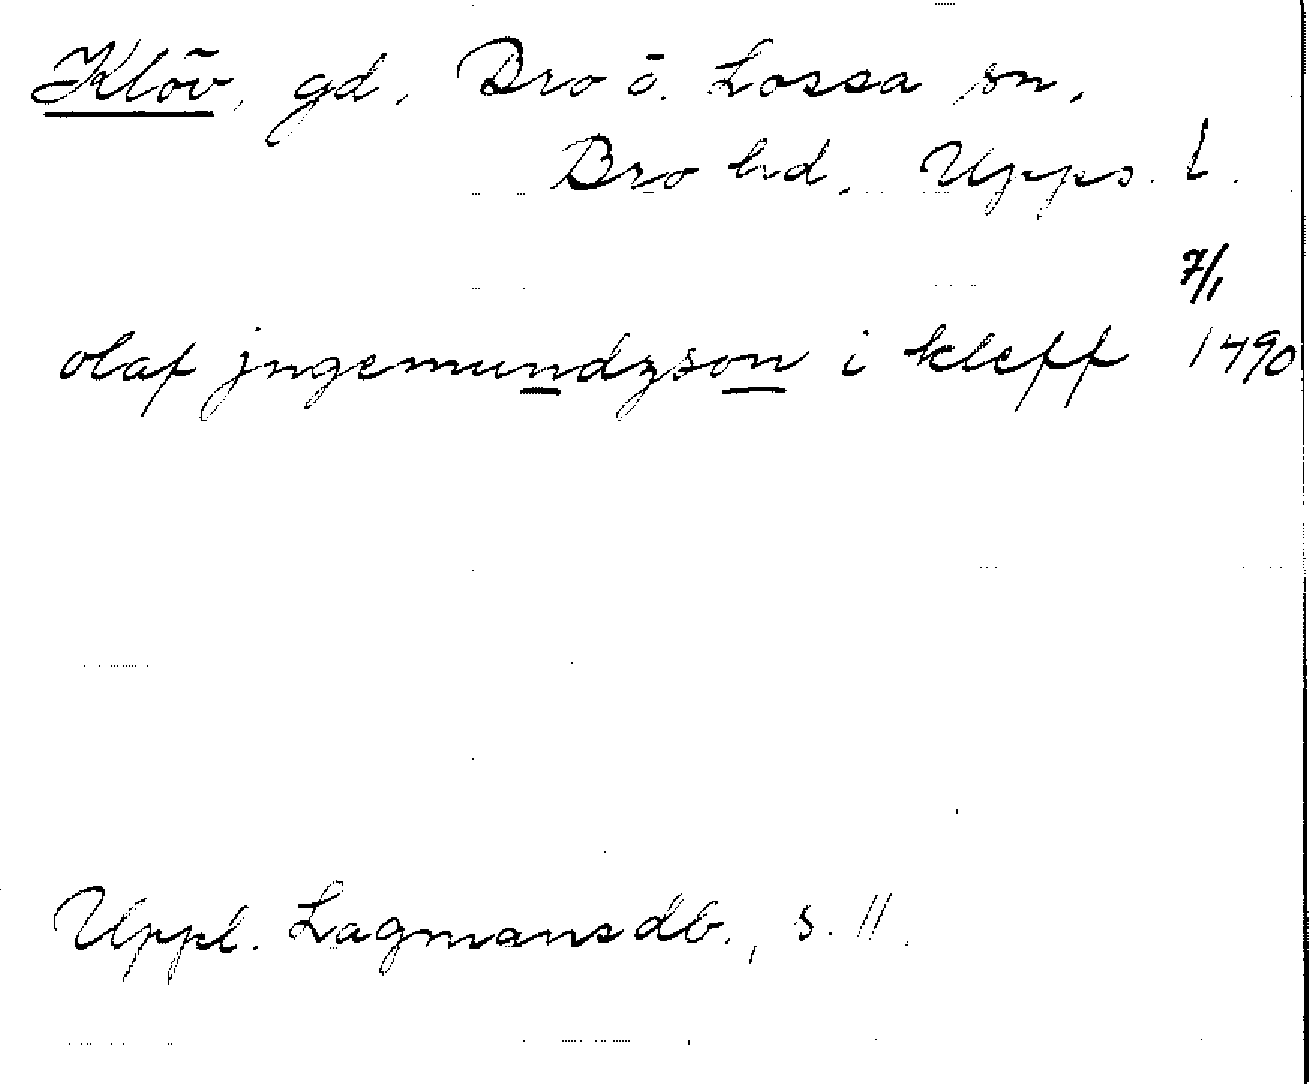 Klöv, gd, Bro o. Lossa sn,
Bro hd, Upps. l.
7/1
olaf jngemundzson i kleff 1490
Uppl. Lagmansdb., s. 11.